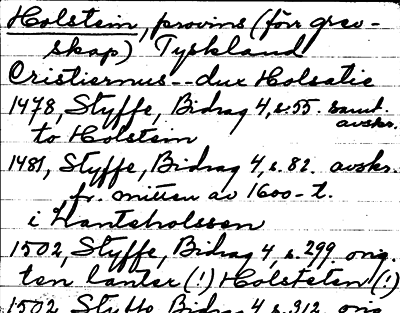 Holstein, provins (förr grev-
skap) Tyskland
Cristiernus--dux Holsatie
1478, Styffe, Bidrag 4, s.55. samt.
avskr.
to Holstein
1481, Styffe, Bidrag 4, s.82. avskr.
fr. mitten av 1600-t.
i Hantsholssen
1502, Styffe, Bidrag 4, s.299. orig.
ten lanter (!) Holsteten (!)
1502, Styffe, Bidrag 4, s.312. orig.